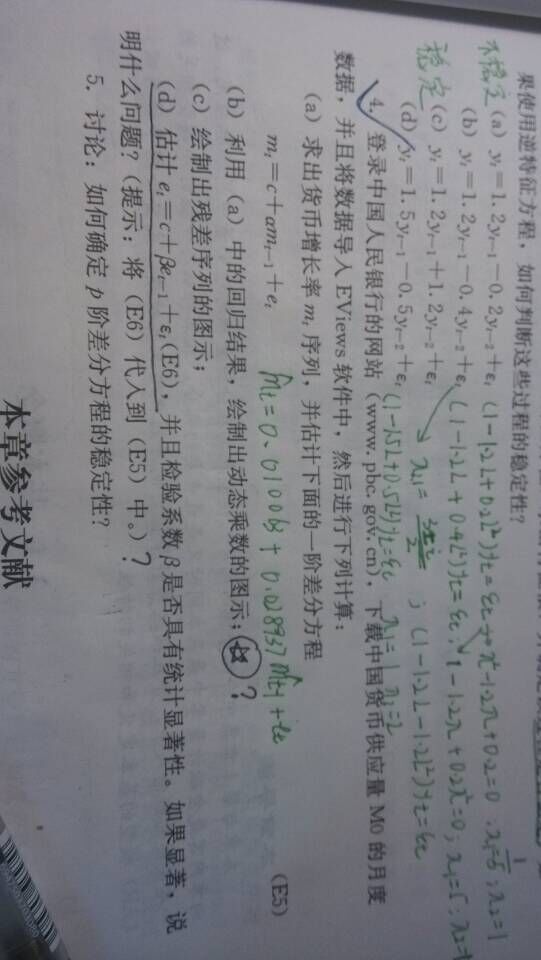 果使用逆特征方程，如何判断这些过程的稳定性？
不稳定 (a) yₜ=1.2yₜ₋₁-0.2yₜ₋₂+εₜ (1-1.2L+0.2L²)yₜ=εₜ → x²-1.2x+0.2=0
(b) yₜ=1.2yₜ₋₁-0.4yₜ₋₂+εₜ (1-1.2L+0.4L²)yₜ=εₜ; 1-1.2x+0.2x²=0; λ₁=5;
稳定 (c) yₜ=1.2yₜ₋₁+1.2yₜ₋₂+εₜ ; (1-1.2L-1.2L²)yₜ=εₜ
(d) yₜ=1.5yₜ₋₁-0.5yₜ₋₂+εₜ (1-1.5L+0.5L²)yₜ=εₜ λ₁=1 λ₂=2
4. 登录中国人民银行的网站（www.pbc.gov.cn），下载中国货币供应量 M0 的月度
数据，并且将数据导入 EViews 软件中，然后进行下列计算：
(a) 求出货币增长率 mₜ 序列，并估计下面的一阶差分方程
mₜ=c+αmₜ₋₁+eₜ (E5)
mₜ=0.010063+0.028937mₜ₋₁+
(b) 利用（a）中的回归结果，绘制出动态乘数的图示；?
(c) 绘制出残差序列的图示；
(d) 估计 eₜ=c+βeₜ₋₁+εₜ(E6)，并且检验系数 β 是否具有统计显著性。如果显著，说
明什么问题？（提示：将（E6）代入到（E5）中。）?
5. 讨论：如何确定 p 阶差分方程的稳定性？
本章参考文献